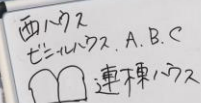 西ハウス
ビニールハウス.A.B.C
連棟ハウス